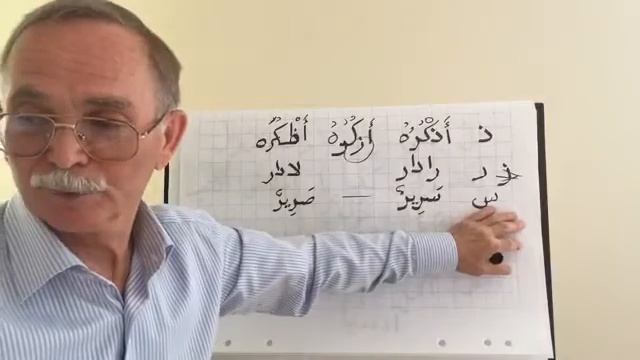 ذ أَذْكُرُهُ أَزْكُرُهُ أَظْكُرُه
ر رادار لادار
س سَرِيرْ — صَرِيرْ